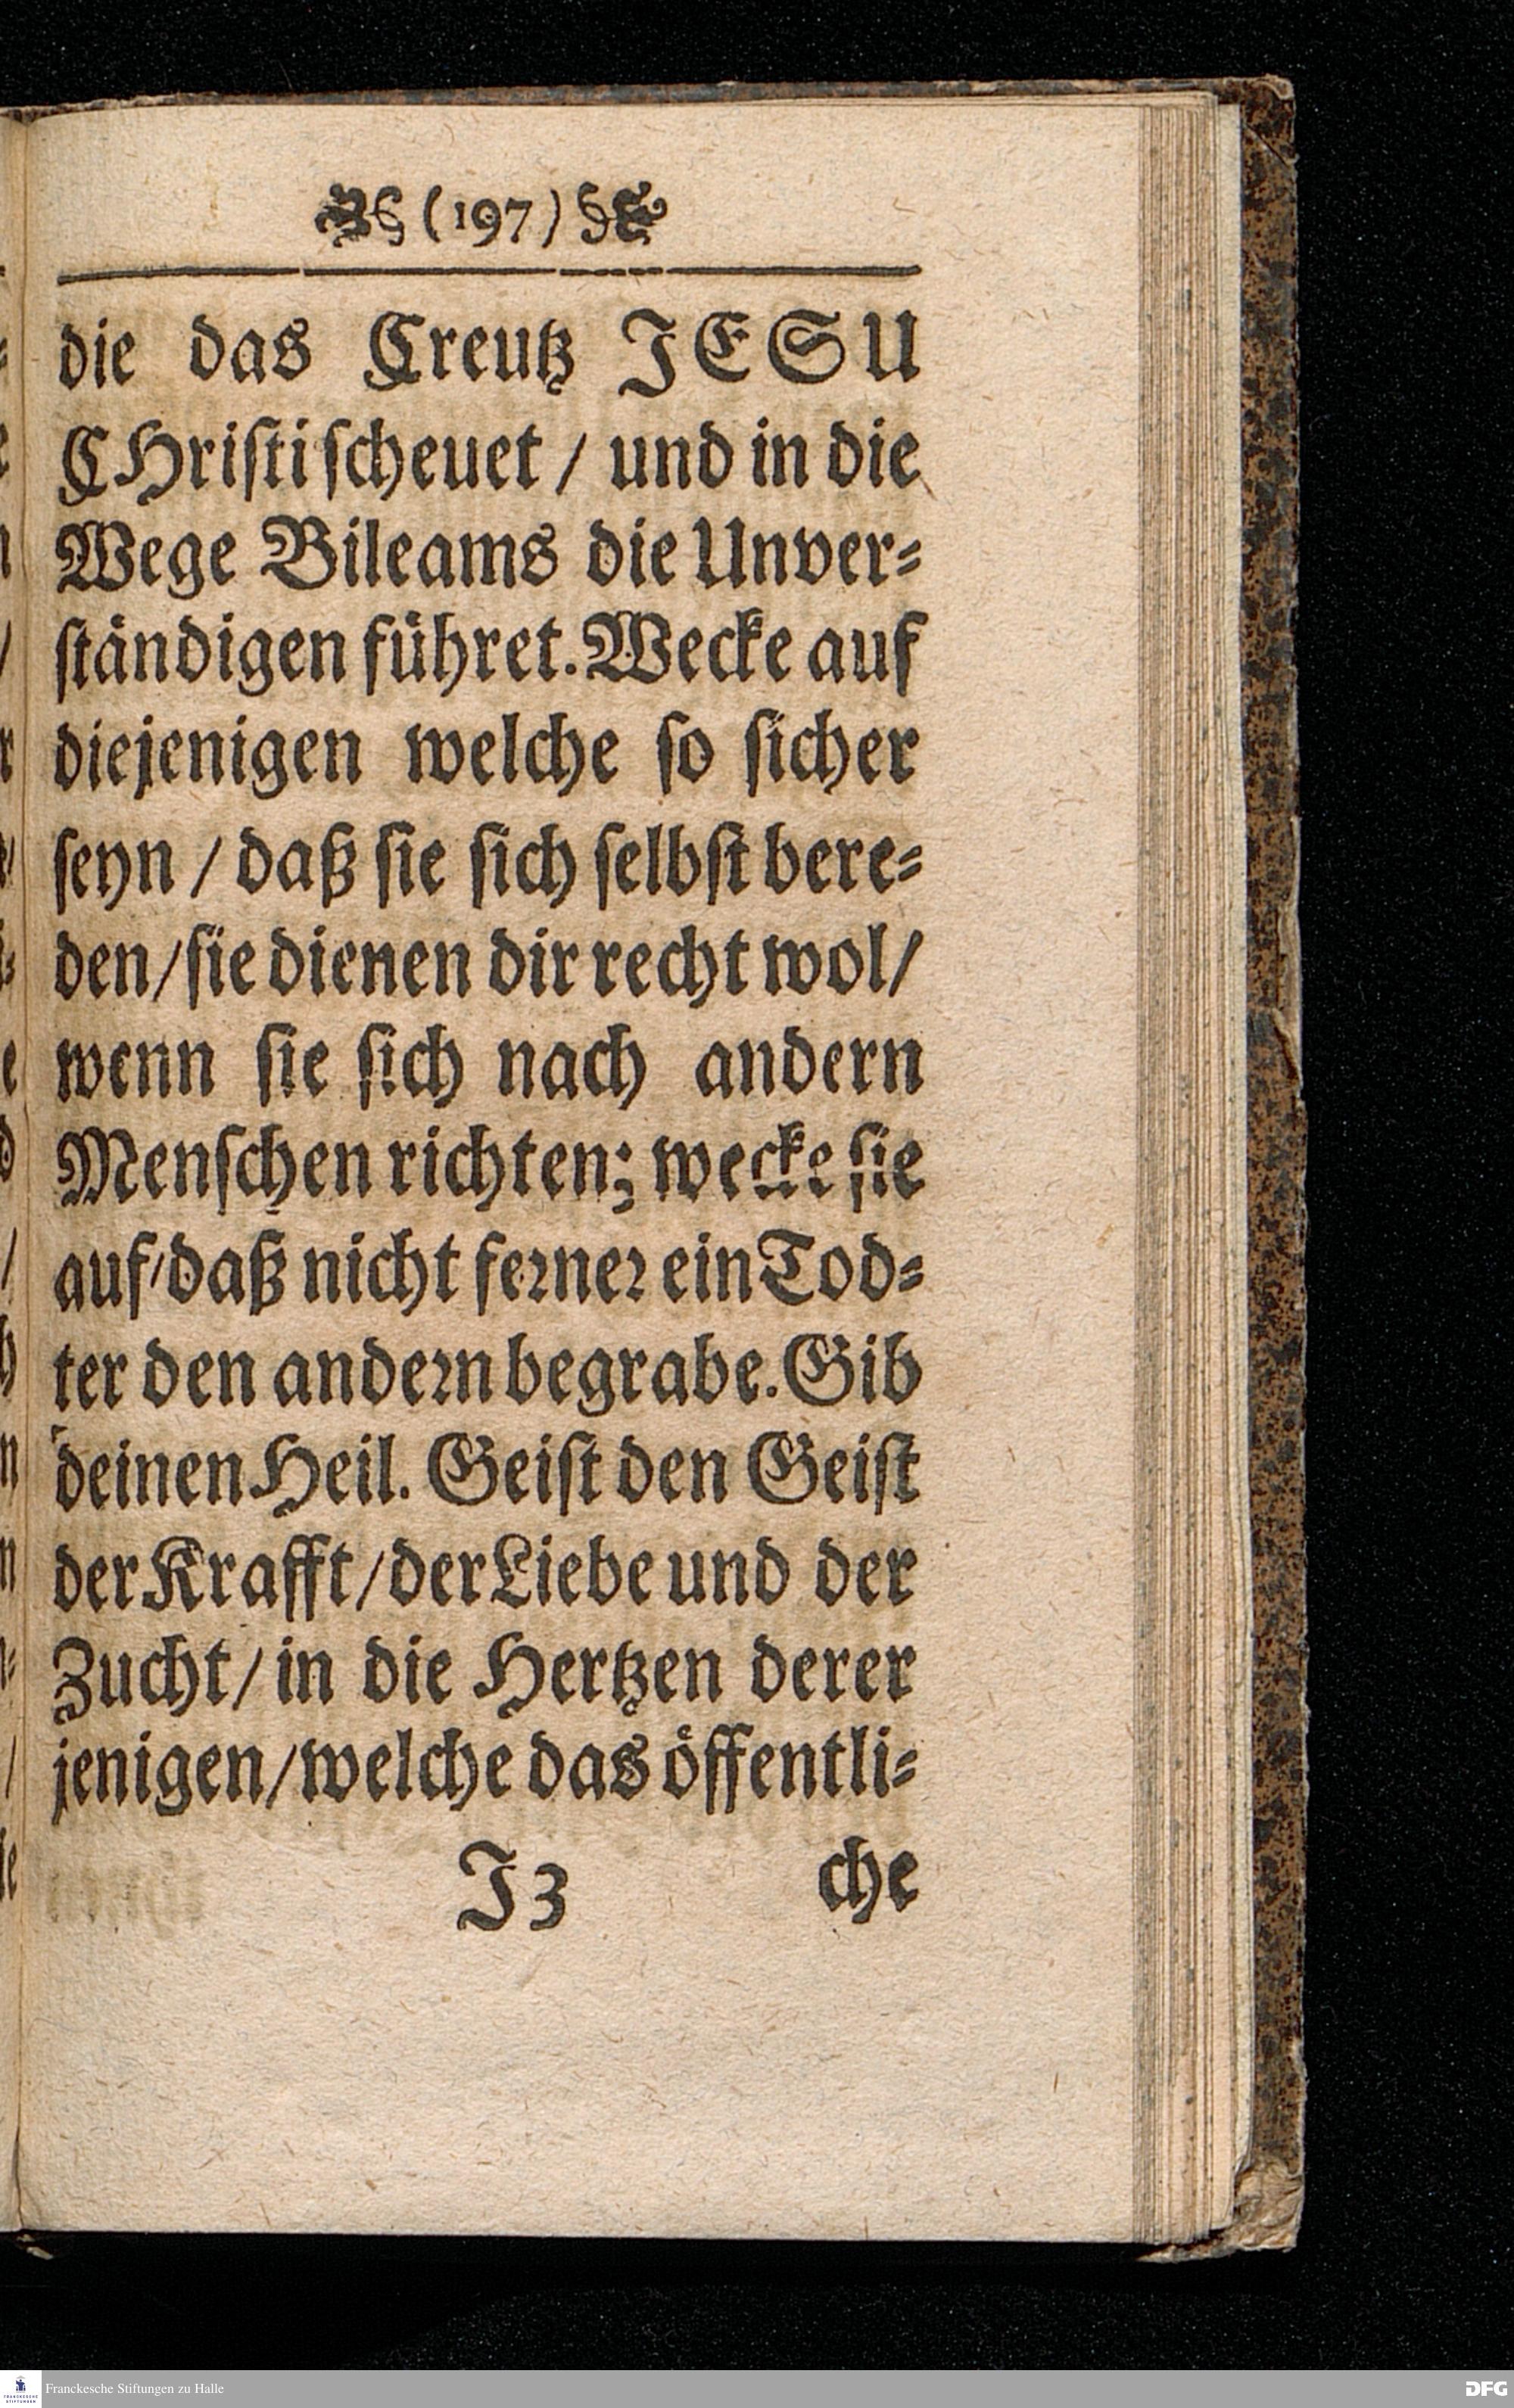 (197)
die das Creutz JESU
CHriſti ſcheuet / und in die
Wege Bileams die Unver⸗
ſtändigen führet. Wecke auf
diejenigen welche ſo ſicher
ſeyn / daß ſie ſich ſelbſt bere⸗
den / ſie dienen dir recht wol /
wenn ſie ſich nach andern
Menſchen richten; wecke ſie
auf / daß nicht ferner ein Tod⸗
ter den andern begrabe. Gib
deinen Heil. Geiſt den Geiſt
der Krafft / der Liebe und der
Zucht / in die Hertzen derer
jenigen / welche das öffentli⸗
J3 che
Franckesche Stiftungen zu Halle
DFG